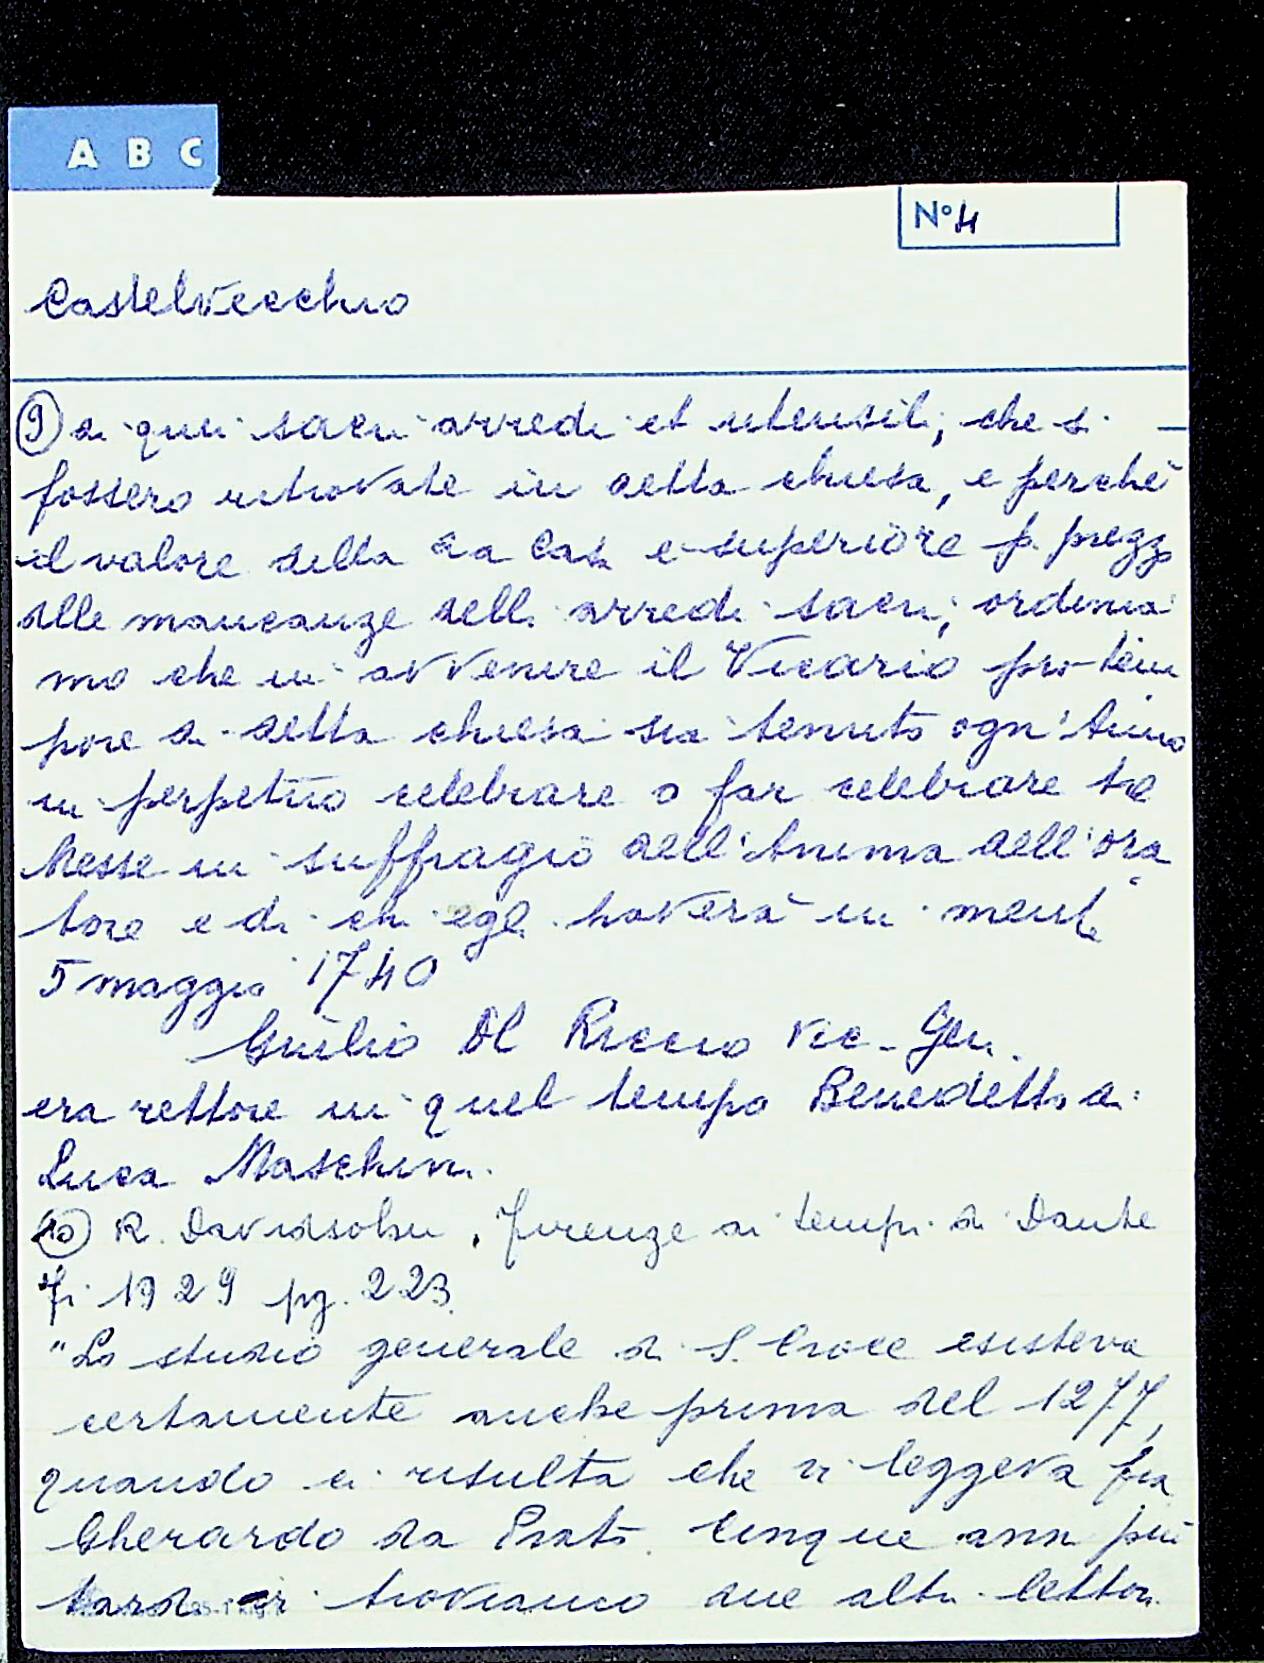 A B C
N° 4
Castelvecchio
9) di quei sacri arredi et utensili, che si
fossero ritrovate in detta chiesa, e perchè
il valore della da Casa e superiore p. prezzo
alle mancanze delli arredi sacri, ordinia
mo che in avvenire il Vicario pro-tem
pore di detta chiesa sia tenuto ogn'Anno
in perpetuo celebrare o far celebrare tre
Messe in suffragio dell'Anima dell'ora
tore e di chi egli haverà in mente"
5 maggio 1740
Guilio Del Riccio Vic. Gen.
era rettore in quel tempo Benedetto di
Luca Maschini.
10) R. Davidsohn, Firenze ai tempi di Dante
Fi 1929 pg. 223.
"Lo studio generale di S. Croce esisteva
certamente anche prima del 1277,
quando ci risulta che vi leggeva fra
Gherardo da Prato. Cinque anni più
tardi vi troviamo due altri lettori